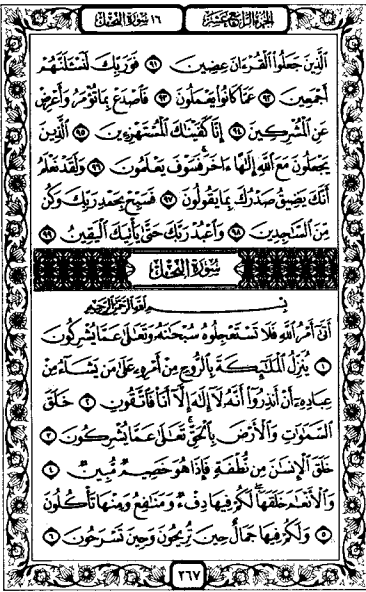 الجزء الرابع عشر
١٦ سورة النحل
الَّذِينَ جَعَلُوا الْقُرْءَانَ عِضِينَ ٩١ فَوَرَبِّكَ لَنَسْـَٔلَنَّهُمْ
أَجْمَعِينَ ٩٢ عَمَّا كَانُوا يَعْمَلُونَ ٩٣ فَاصْدَعْ بِمَا تُؤْمَرُ وَأَعْرِضْ
عَنِ الْمُشْرِكِينَ ٩٤ إِنَّا كَفَيْنَاكَ الْمُسْتَهْزِءِينَ ٩٥ الَّذِينَ
يَجْعَلُونَ مَعَ اللَّهِ إِلَٰهًا ءَاخَرَ فَسَوْفَ يَعْلَمُونَ ٩٦ وَلَقَدْ نَعْلَمُ
أَنَّكَ يَضِيقُ صَدْرُكَ بِمَا يَقُولُونَ ٩٧ فَسَبِّحْ بِحَمْدِ رَبِّكَ وَكُن
مِّنَ السَّاجِدِينَ ٩٨ وَاعْبُدْ رَبَّكَ حَتَّىٰ يَأْتِيَكَ الْيَقِينُ ٩٩
سورة النحل
بِسْمِ اللَّهِ الرَّحْمَٰنِ الرَّحِيمِ
أَتَىٰ أَمْرُ اللَّهِ فَلَا تَسْتَعْجِلُوهُ سُبْحَٰنَهُ وَتَعَٰلَىٰ عَمَّا يُشْرِكُونَ
١ يُنَزِّلُ الْمَلَٰٓئِكَةَ بِالرُّوحِ مِنْ أَمْرِهِ عَلَىٰ مَن يَشَآءُ مِنْ
عِبَادِهِ أَنْ أَنذِرُوٓا أَنَّهُ لَآ إِلَٰهَ إِلَّآ أَنَا فَاتَّقُونِ ٢ خَلَقَ
السَّمَٰوَٰتِ وَالْأَرْضَ بِالْحَقِّ تَعَٰلَىٰ عَمَّا يُشْرِكُونَ ٣
خَلَقَ الْإِنسَٰنَ مِن نُّطْفَةٍ فَإِذَا هُوَ خَصِيمٌ مُّبِينٌ ٤
وَالْأَنْعَٰمَ خَلَقَهَا لَكُمْ فِيهَا دِفْءٌ وَمَنَٰفِعُ وَمِنْهَا تَأْكُلُونَ
٥ وَلَكُمْ فِيهَا جَمَالٌ حِينَ تُرِيحُونَ وَحِينَ تَسْرَحُونَ ٦
٢٦٧